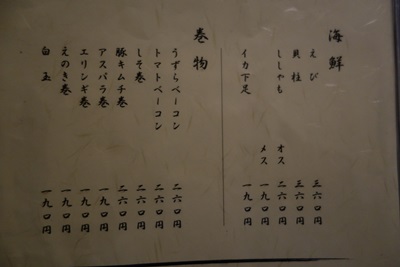 海鮮
えび 三六〇円
貝柱 三六〇円
ししゃも オス 二六〇円
メス 一九〇円
イカ下足 一九〇円
巻物
うずらベーコン 二六〇円
トマトベーコン 二六〇円
しそ巻 二六〇円
豚キムチ巻 二六〇円
アスパラ巻 一九〇円
エリンギ巻 一九〇円
えのき巻 一九〇円
白玉 一九〇円